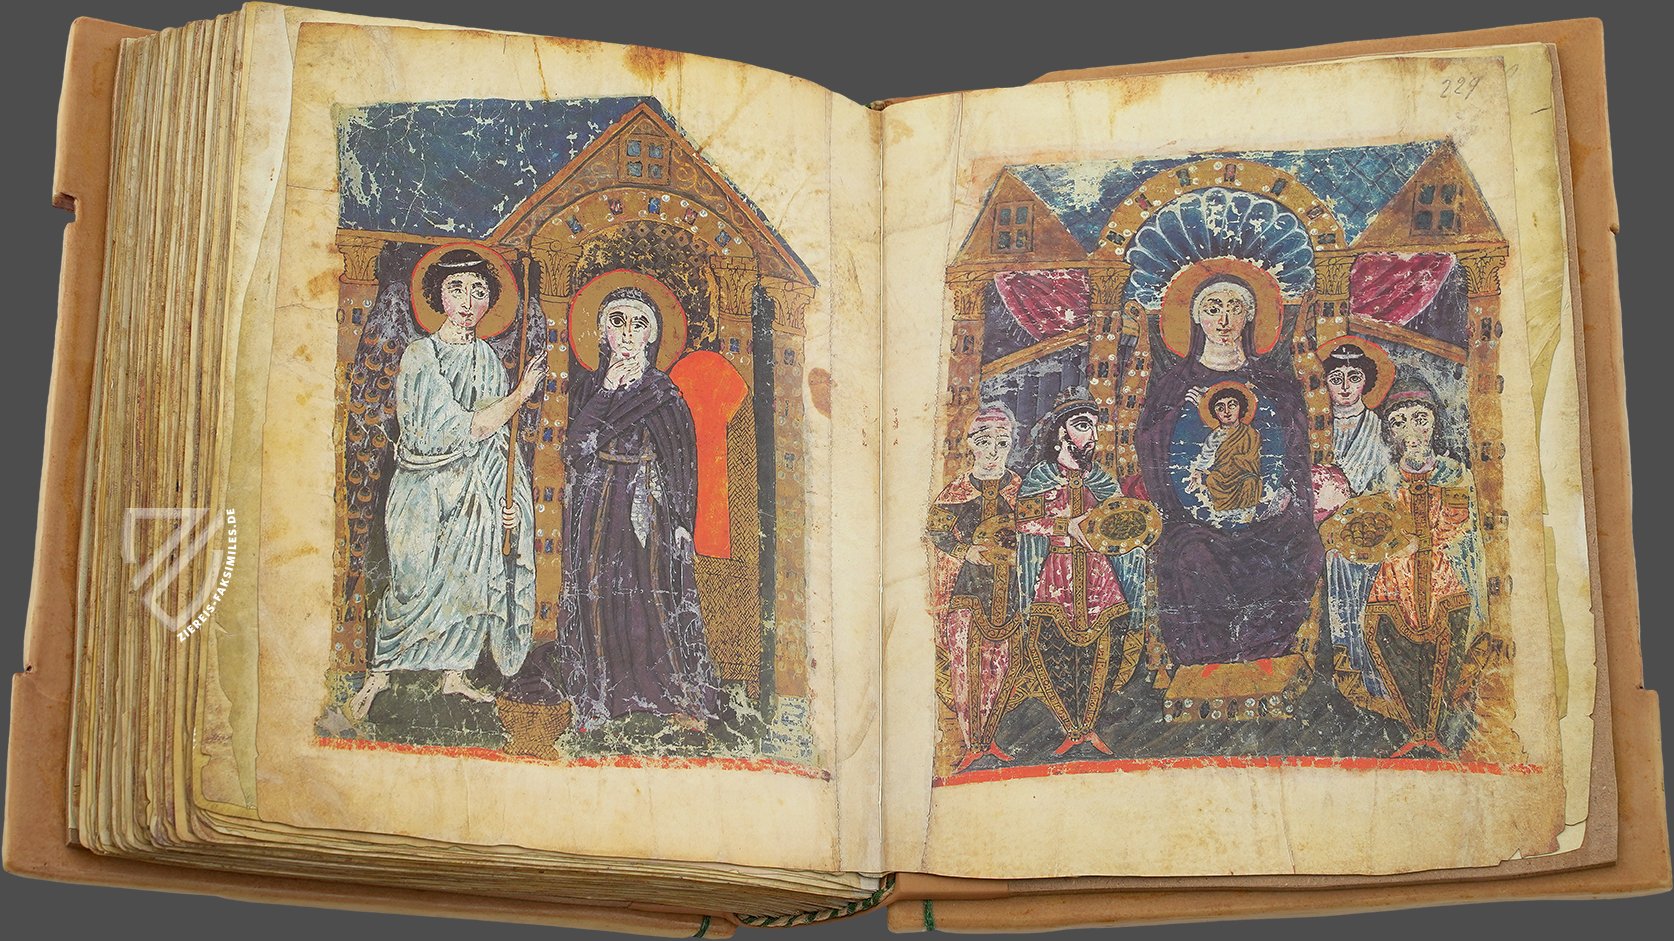 229
ZIEREIS-FAKSIMILES.DE